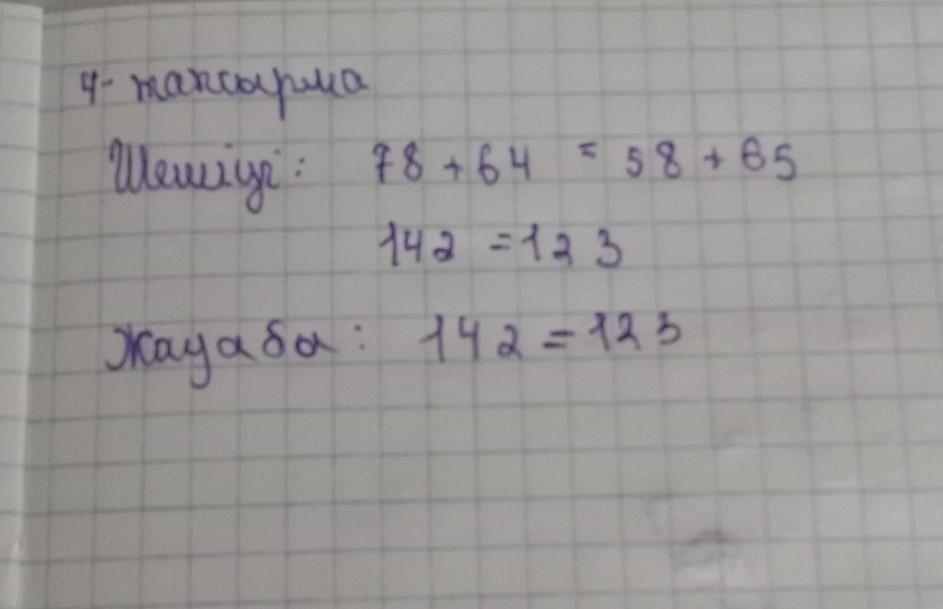 4-тапсырма
Шешуі: 78 + 64 = 58 + 65
142 = 123
Жауабы: 142 = 123